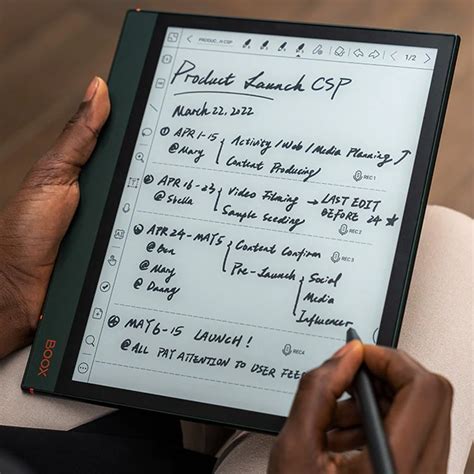 PRODUC_H CSP
1/2
Product Launch CSP
March 22, 2022
① APR 1-15 { Activity / Web / Media Planning
@Mary Content Producing
REC 1
② APR 16-23 { Video Filming → LAST EDIT
@Stella Sample Seeding BEFORE 24 ★
REC 2
③ APR 24-MAY 5 { Content Confirm
REC 3
@Ben Pre-Launch { Social
@Mary Media
@Danny Influencer
④ MAY 6-15 LAUNCH!
REC 4
@ALL PAY ATTENTION TO USER FEE
BOOX